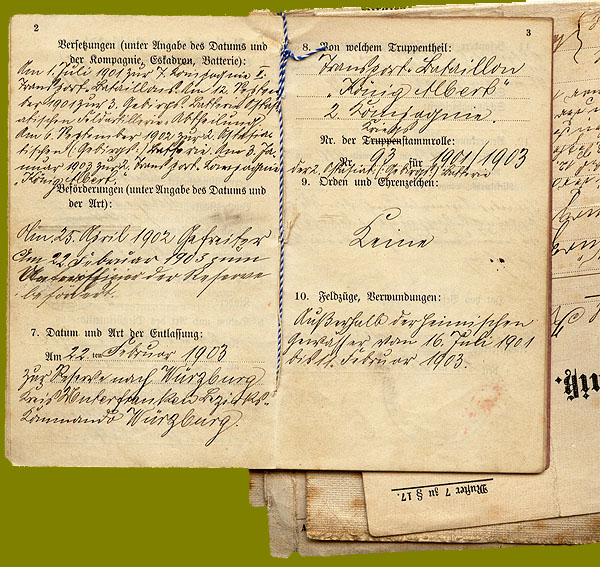 2
Versetzungen (unter Angabe des Datums und
der Kompagnie, Eskadron, Batterie):
Am 1. Juli 1901 zur 7. Kompagnie I.
Transport-Bataillons. Am 12. Septem-
ber 1901 zur 3. Gebirgs-Batterie Ostasi-
atischen Feldartillerie-Abtheilung.
Am 6. September 1902 zur 2. Ostasia-
tischen (Gebirgs-) Batterie. Am 3. Ja-
nuar 1903 zur 2. Transport-Compagnie
"König Albert."
Beförderungen (unter Angabe des Datums und
der Art):
Am 25. April 1902 Gefreiter
Am 22. Februar 1903 zum
Unteroffizier der Reserve
befördert.
7. Datum und Art der Entlassung:
Am 22. ten Februar 1903
zur Reserve nach Würzburg
Kreis Unterfranken Bezirks-
Kommando Würzburg.
3
8. Von welchem Truppentheil:
Transport-Bataillon
"König Albert"
2. Kompagnie.
Kriegs
Nr. der Truppenstammrolle:
Nr. 93 für 1901/1903
der 2. Ostasiat. (Gebirgs-) Batterie
9. Orden und Ehrenzeichen:
Keine
10. Feldzüge, Verwundungen:
Außerhalb der heimischen
Gewässer vom 16. Juli 1901
bis 11. Februar 1903.
Muster 7 zu § 17.